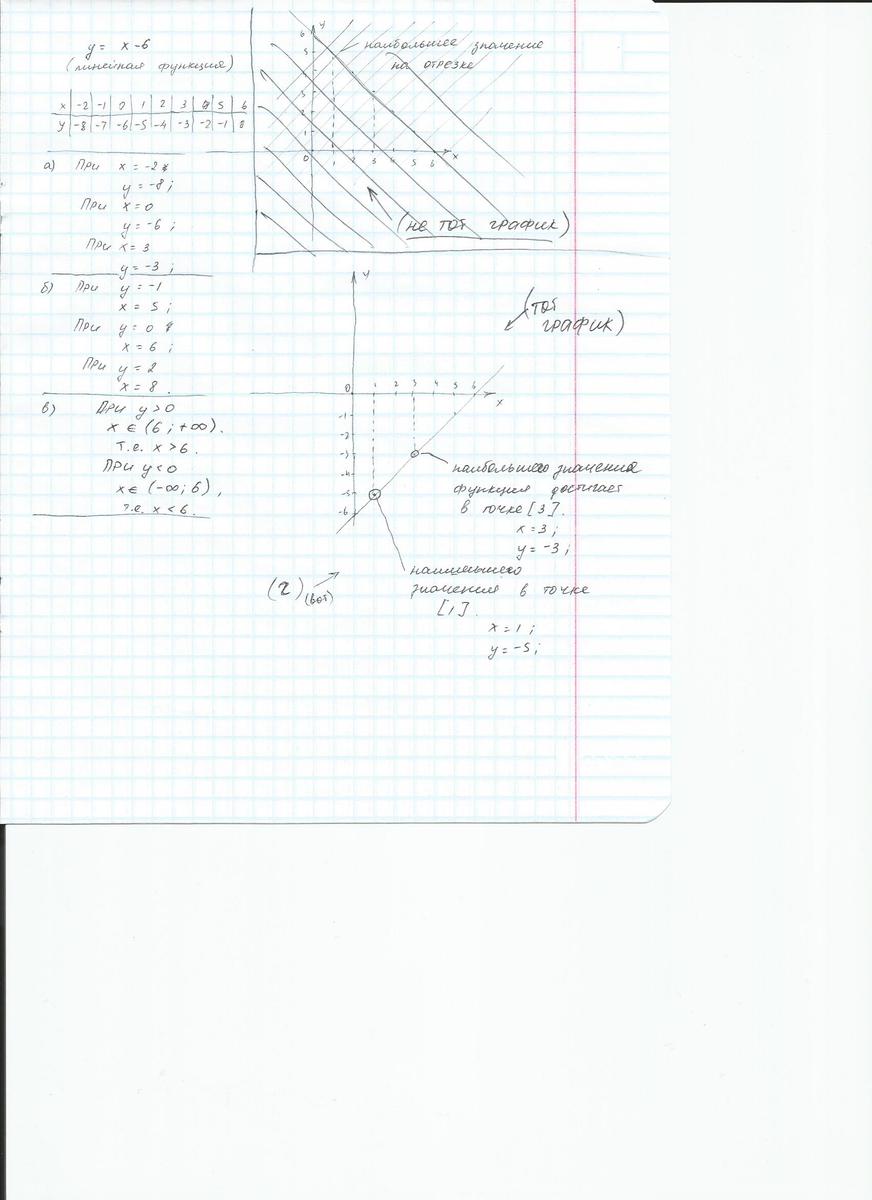 y = x - 6
(линейная функция)
x | -2 | -1 | 0 | 1 | 2 | 3 | 4 | 5 | 6
y | -8 | -7 | -6 | -5 | -4 | -3 | -2 | -1 | 0
а) При x = -2
y = -8;
При x = 0
y = -6;
При x = 3
y = -3;
б) При y = -1
x = 5;
При y = 0
x = 6;
При y = 2
x = 8.
в) При y > 0
x ∈ (6; +∞).
т.е. x > 6.
При y < 0
x ∈ (-∞; 6),
т.е. x < 6.
y
6
5
3
2
1
0 1 2 3 4 5 6 x
наибольшее значение
на отрезке
(не тот график)
y
(тот
график)
0 1 2 3 4 5 6
x
-1
-2
-3
-4
-5
-6
наибольшего значения
функция достигает
в точке [3].
x = 3;
y = -3;
наименьшего
значения в точке
[1].
x = 1;
y = -5;
(г) (вот)